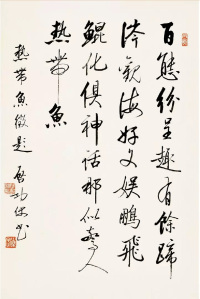 百態紛呈趣有餘蹄
涔觀海好文娛鵬飛
鯤化俱神話那似人
熱帶魚
熱帶魚徵題 啟功